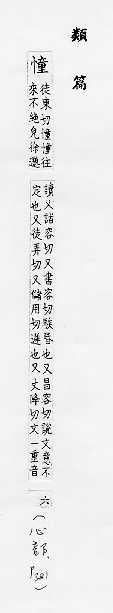 類篇
憧
徒東切憧憧往
來不絕皃徐邈
讀又諸容切又書容切騃昏也又昌容切說文意不
定也又徒弄切又儲用切遲也又丈降切文一重音
六
(心